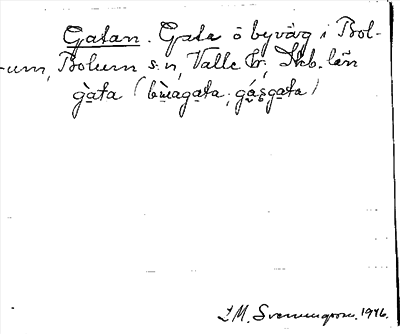 Gatan. Gata o byväg i Bol-
-um, Bolum s:n, Valle hd, Skb. län
gata (bùagata, gásgata)
I. M. Svenungsson. 1946.